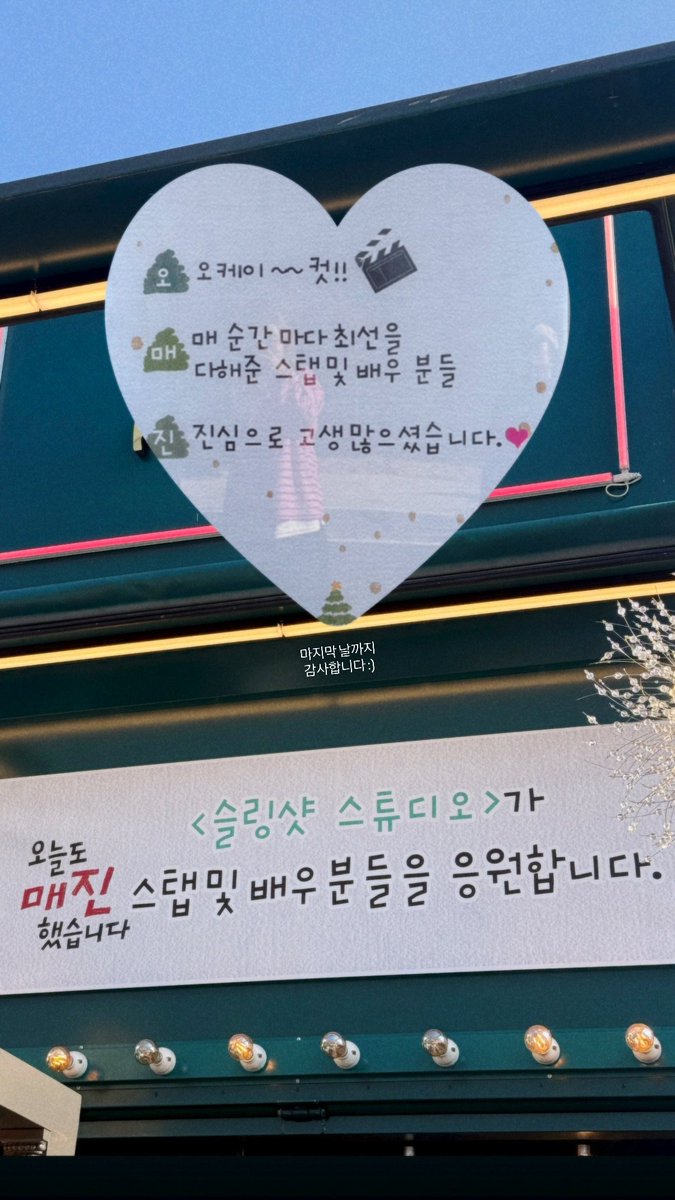 오 오케이~~컷!!
매 매 순간마다 최선을
다해준 스탭및 배우 분들
진 진심으로 고생많으셨습니다.
마지막 날까지
감사합니다 :)
<슬링샷 스튜디오>가
오늘도
매진
했습니다
스탭및 배우분들을 응원합니다.